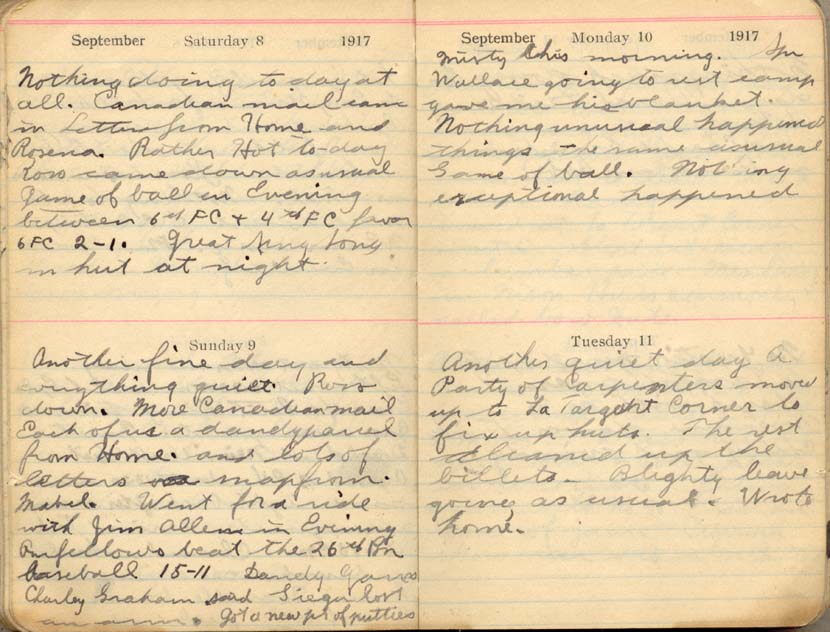 September Saturday 8 1917
Nothing doing to day at
all. Canadian mail came
in Letters from Home and
Rosena. Rather Hot to-day
Ross came down as usual
Game of ball in Evening
between 6th FC + 4th FC favor
6 FC 2-1. Great Sing Song
in hut at night.
Sunday 9
Another fine day and
everything quiet. Ross
down. More Canadian mail
Each of us a dandy parcel
from Home. and lots of
letters map from.
Mabel. Went for a ride
with Jim Allen in Evening
Our fellows beat the 26th Bn
baseball 15-11 Dandy Game
Charley Graham said lost
an arm. Got a new pr of putties
September Monday 10 1917
Misty this morning.
Wallace going to rest camp
gave me his blanket.
Nothing unusual happened
things the same as usual
Game of ball. Nothing
exceptional happened
Tuesday 11
Another quiet day A
Party of Carpenters move
up to La Targett Corner to
fix up huts. The rest
cleaned up the
billets. Blighty leave
going as usual. Wrote
home.